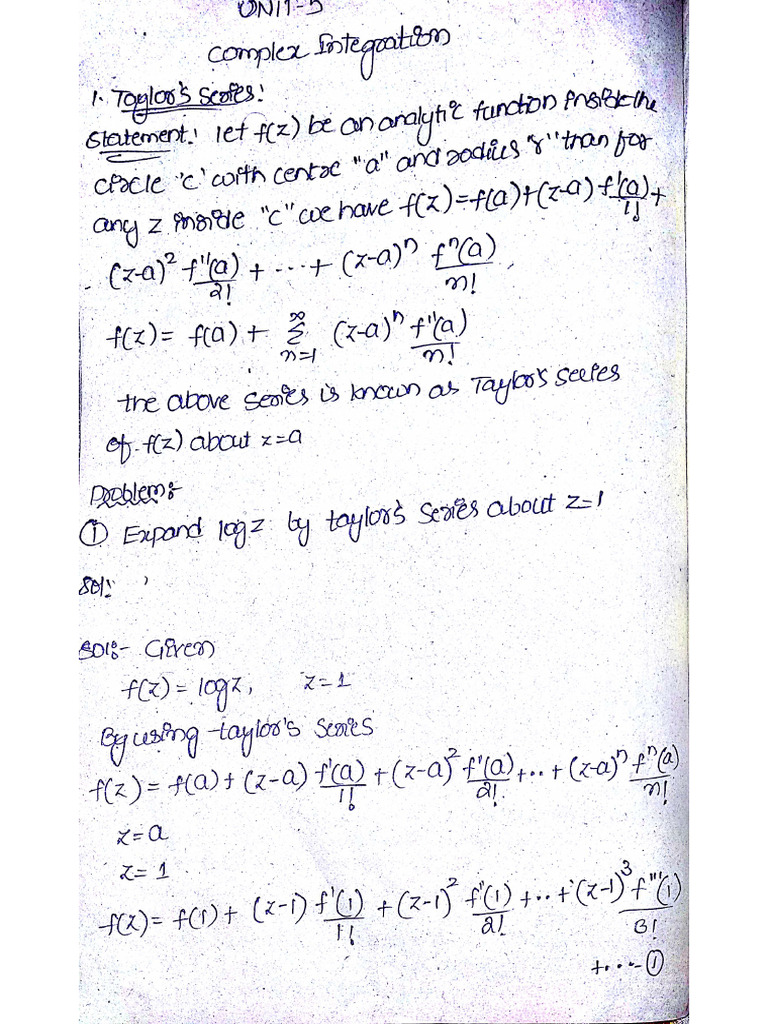 UNIT-5
Complex Integration
1. Taylor's Series:
Statement: let f(z) be an analytic function inside the
circle 'c' with centre "a" and radius "r" than for
any z inside "c" we have f(z)=f(a)+(z-a) f'(a)/1! +
(z-a)² f''(a)/2! + ... + (z-a)ⁿ fⁿ(a)/n!
f(z) = f(a) + ∞Σn=1 (z-a)ⁿ f''(a)/n!
the above series is known as Taylor's Series
of f(z) about z=a
Problem:-
① Expand log z by taylor's series about z=1
Sol:
Sol:- Given
f(z) = log z, z=1
By using taylor's series
f(z) = f(a) + (z-a) f'(a)/1! + (z-a)² f''(a)/2! + .. + (z-a)ⁿ fⁿ(a)/n!
z=a
z=1
f(z) = f(1) + (z-1) f'(1)/1! + (z-1)² f''(1)/2! + .. + (z-1)³ f'''(1)/3!
+...-①